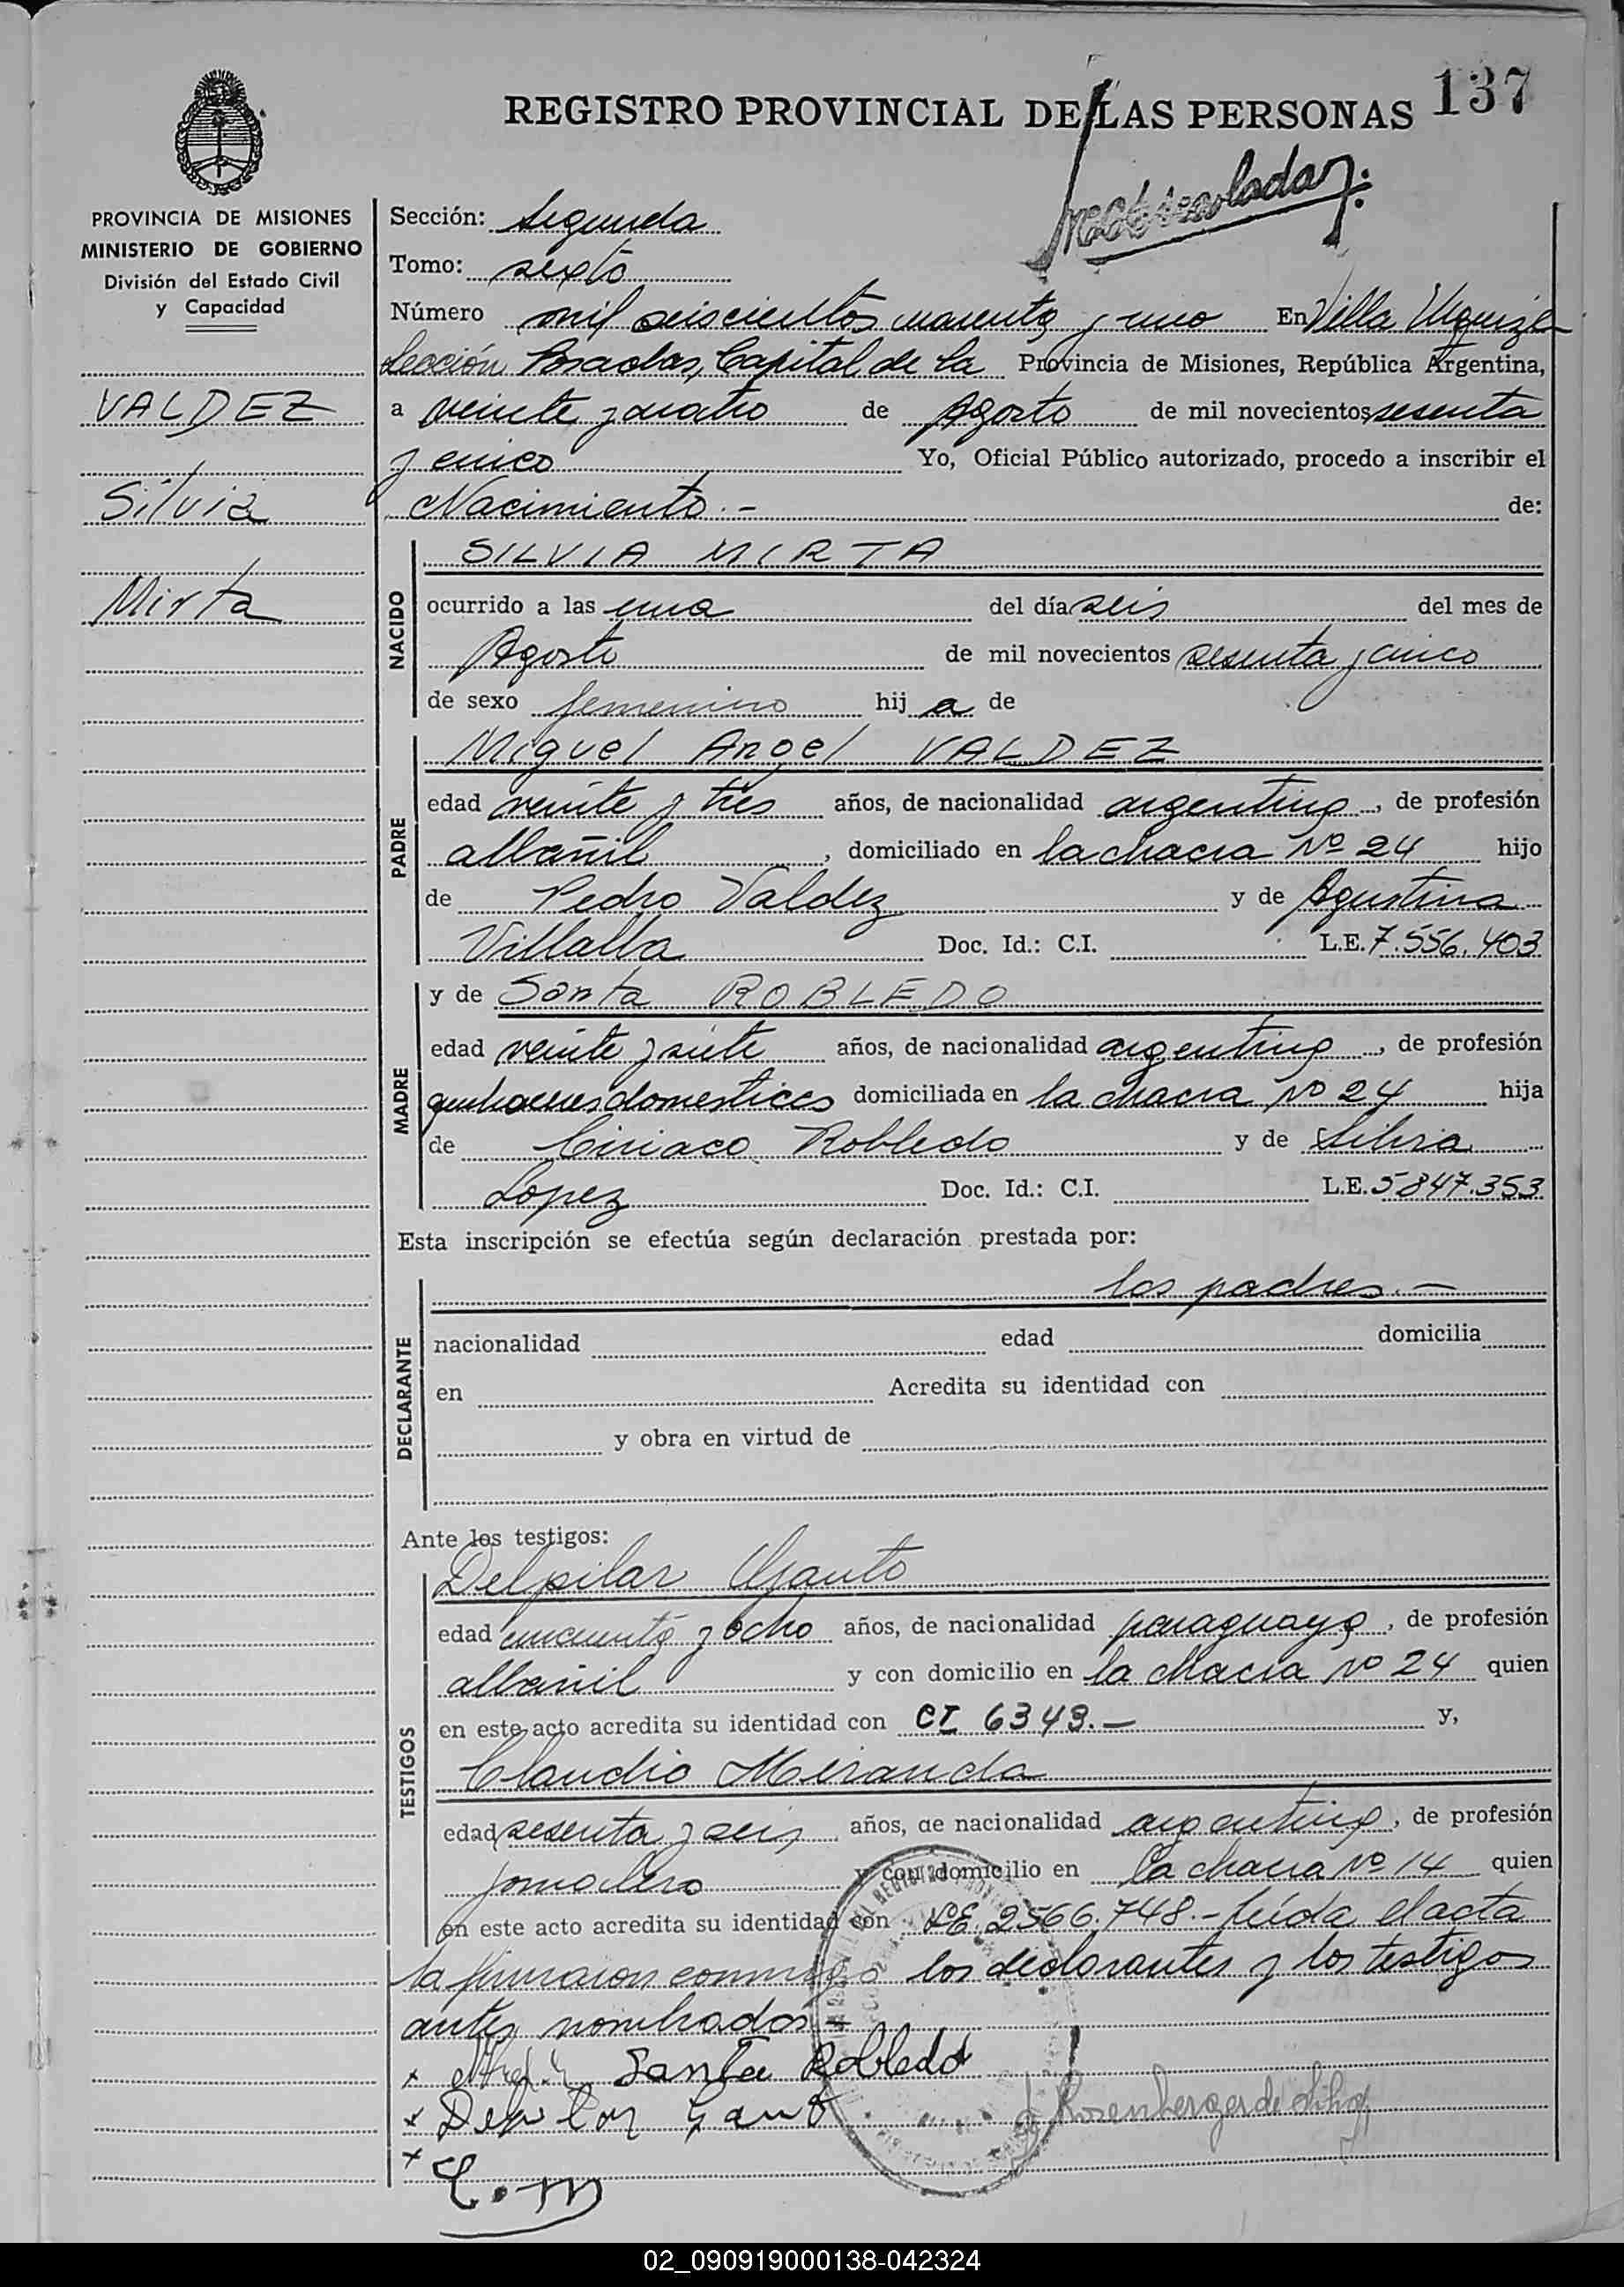 REGISTRO PROVINCIAL DE LAS PERSONAS 137
PROVINCIA DE MISIONES
MINISTERIO DE GOBIERNO
División del Estado Civil
y Capacidad
VALDEZ
Silvia
Mirta
Sección: Segunda
Tomo: sexto
Número mil seiscientos cuarenta y uno En Villa Urquiza
Sección Posadas, Capital de la Provincia de Misiones, República Argentina,
a veinte y cuatro de Agosto de mil novecientos sesenta
y cinco Yo, Oficial Público autorizado, procedo a inscribir el
Nacimiento.- de:
NACIDO
SILVIA MIRTA
ocurrido a las una del día seis del mes de
Agosto de mil novecientos sesenta y cinco
de sexo femenino hij a de
PADRE
Miguel Angel VALDEZ
edad veinte y tres años, de nacionalidad argentina, de profesión
albañil, domiciliado en la chacra Nº 24 hijo
de Pedro Valdez y de Agustina
Villalba Doc. Id.: C.I. L.E. 7.556.403
MADRE
y de Santa ROBLEDO
edad veinte y siete años, de nacionalidad argentina, de profesión
quehaceres domesticos domiciliada en la chacra Nº 24 hija
de Ciriaco Robledo y de Silvia
Lopez Doc. Id.: C.I. L.E. 5847.353
Esta inscripción se efectúa según declaración prestada por:
DECLARANTE
los padres.-
nacionalidad edad domicilia
en Acredita su identidad con
y obra en virtud de
Ante los testigos:
TESTIGOS
Delpilar Gauto
edad cincuenta y ocho años, de nacionalidad paraguaya, de profesión
albañil y con domicilio en la chacra Nº 24 quien
en este acto acredita su identidad con CI 6343.- y,
Claudio Miranda
edad sesenta y seis años, de nacionalidad argentina, de profesión
jornalero y con domicilio en la chacra Nº 14 quien
en este acto acredita su identidad con LE. 2566.748.- Leída el acta
la firmaron conmigo los declarantes y los testigos
antes nombrados.-
x Santa Robledo
x Delpilar Gauto
x C.m
02_090919000138-042324